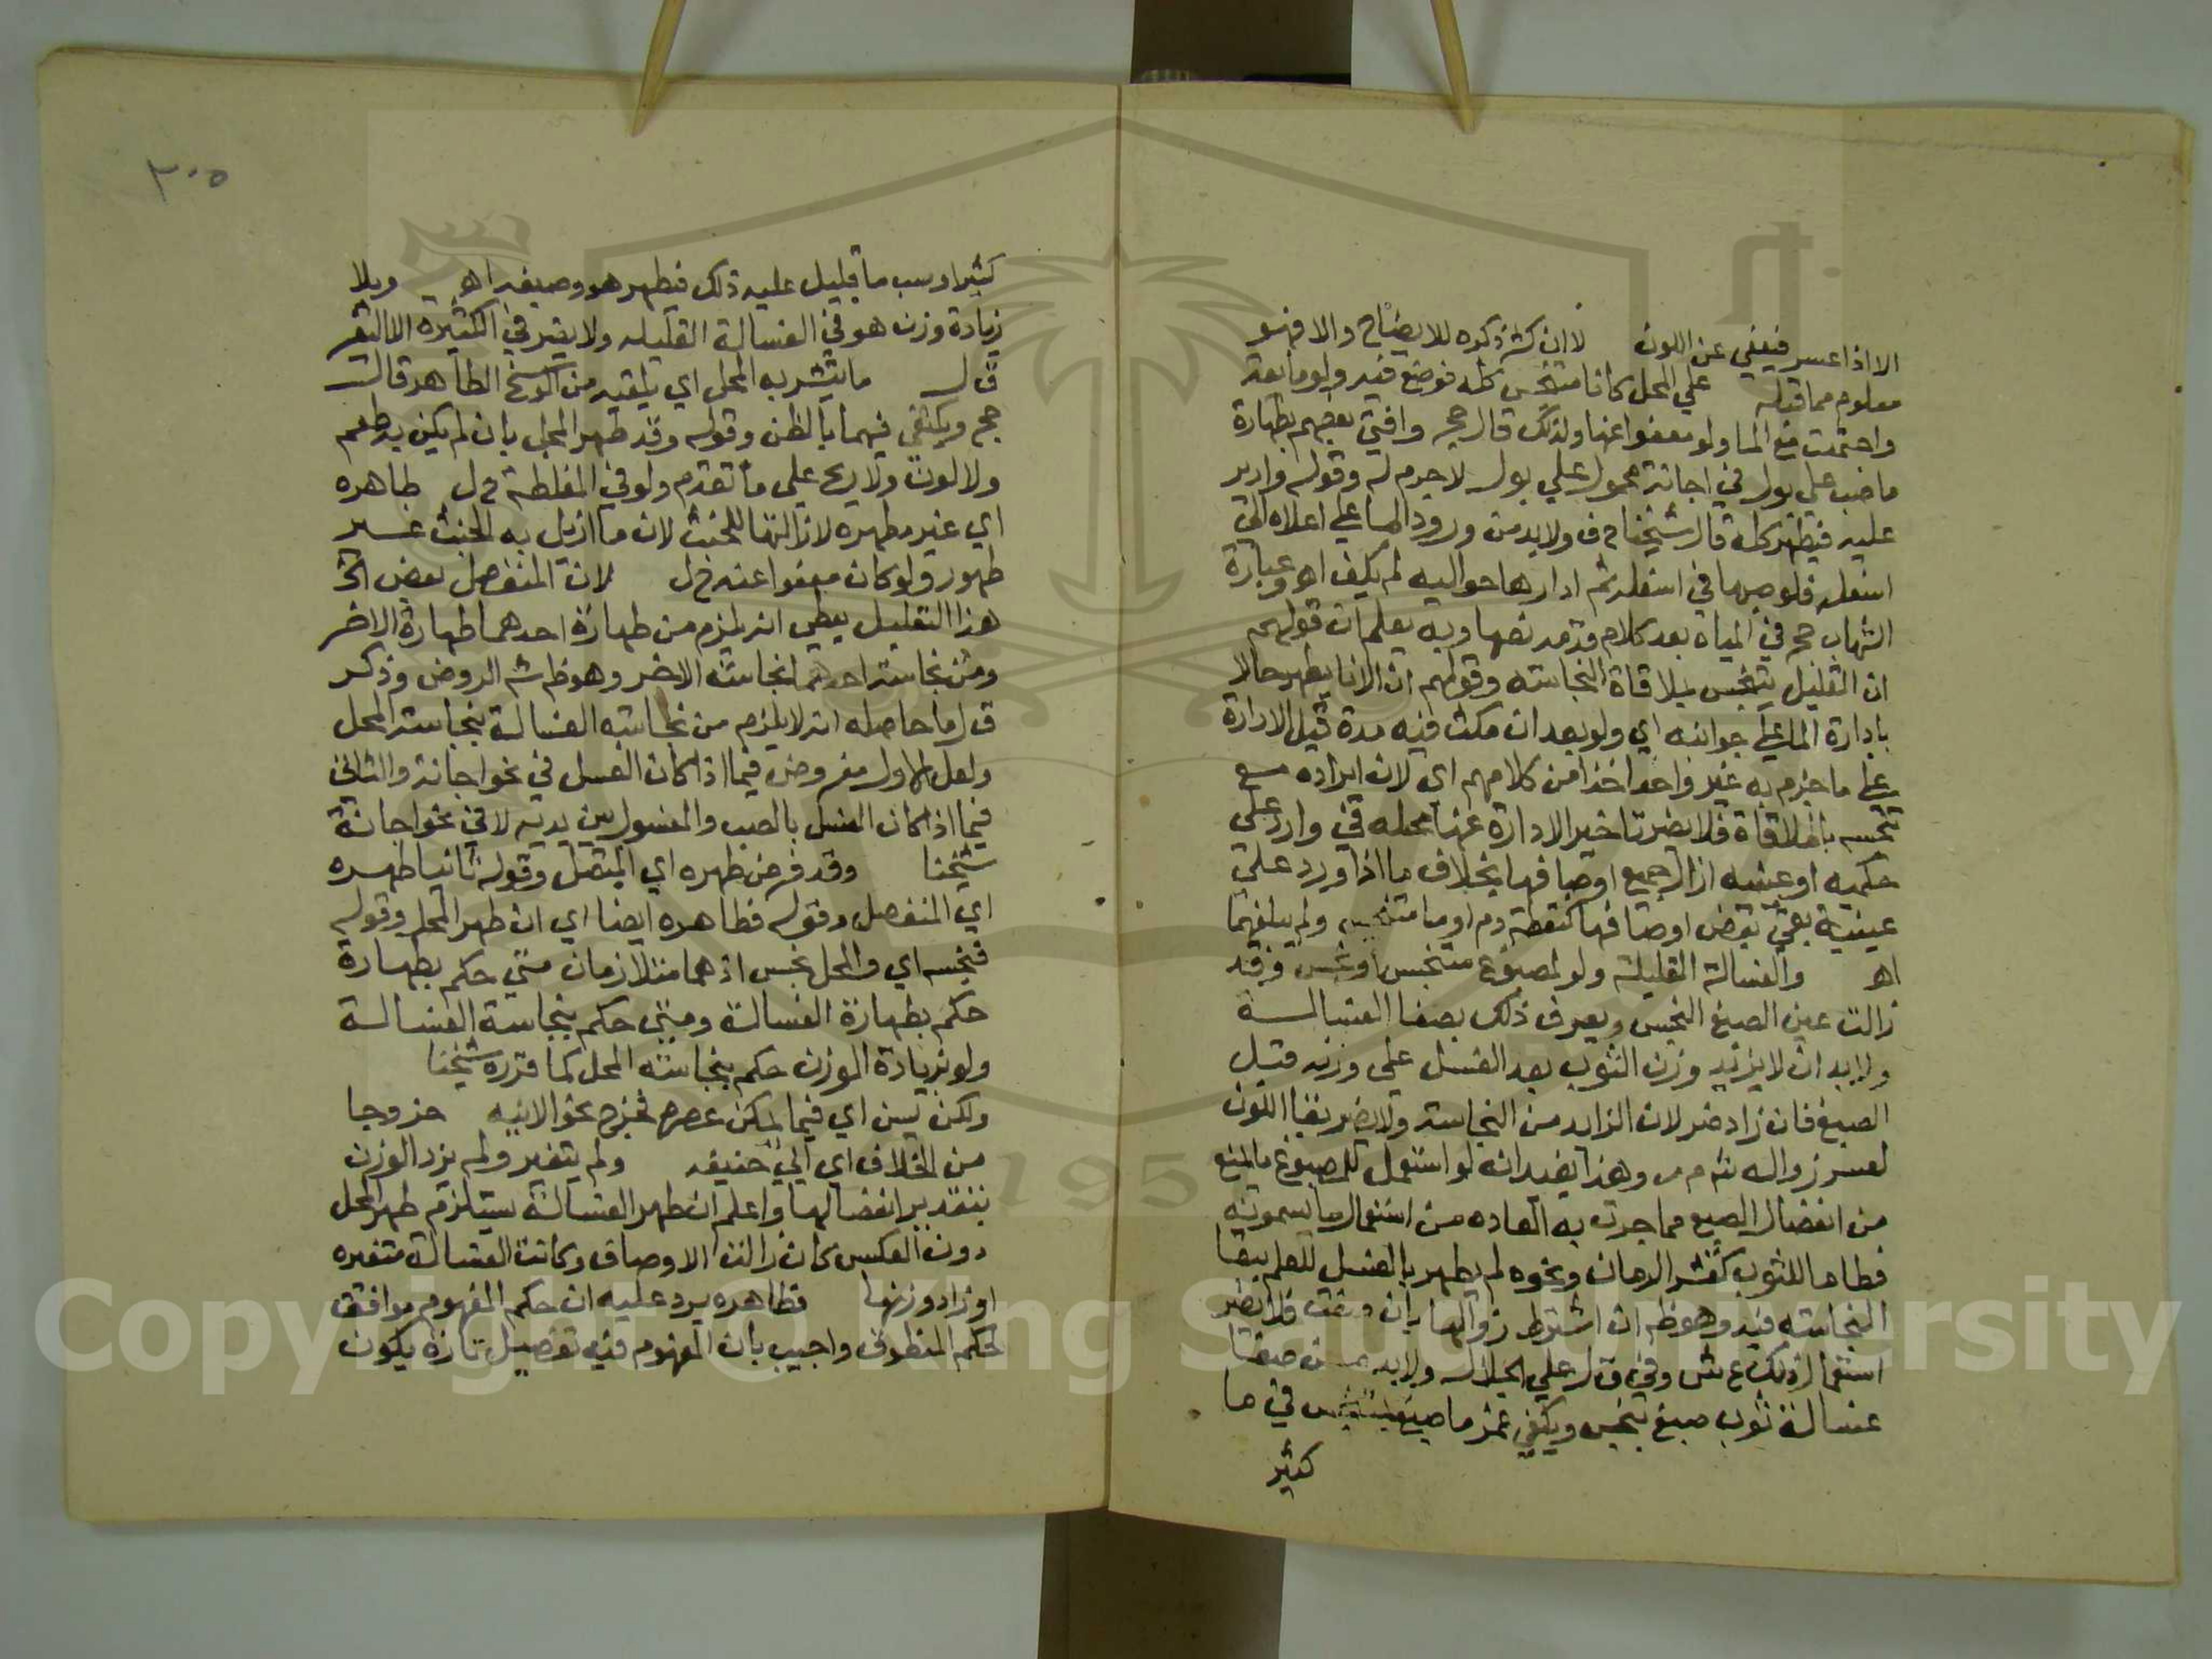 الا اذا عسر فيعفي عن اللون لا ان كثر ذكره للايضاح والا فهو
معلوم مما قبله علي المحل كانا متنجس كله فوضع فيه ولو مايعة
واجتمعت مع الما ولو معفوا عنها ولذلك قال حج وافتي بعضهم بطهارة
ما صب علي بول في اجانة محمول علي بول لا جرم له وقوله وادير
عليه فيطهر كله قال شيخنا ح ف ولا بد من ورود الما علي اعلاه الي
اسفله فلو صبها في اسفله ثم ادارها حواليه لم يكف اهـ وعبارة
الشهاب حج في المياه بعد كلام قدمه نصها وبه يعلم ان قولهم
ان القليل يتنجس بملاقاة النجاسة وقولهم ان الانا يطهر حالا
بادارة الما علي جوانبه اي ولو بعد ان مكث فيه مدة قبل الادارة
علي ما جزم به غير واحد اخذا من كلامهم اي لان ايراده منع
تنجسه بالملاقاة فلا يضر تاخير الادارة عنها محله في وارد علي
حكمية او عينية ازال جميع اوصافها بخلاف ما اذا ورد علي
عينية بقي بعض اوصافها كنقطة دم او ما متنجس ولم يبلغهما
اهـ والغسالة القليلة ولو لمصبوغ متنجس او نجس وقد
زالت عين الصبغ النجس ويعرف ذلك بصفا الغسالة
ولا بد ان لا يزيد وزن الثوب بعد الغسل علي وزنه قبل
الصبغ فان زاد ضر لان الزايد من النجاسة ولا يضر بقا اللون
لعسر زواله ش م ر وهذا يفيد انه لو استعمل للمصبوغ ما يمنع
من انفصال الصبغ مما جرت به العادة من استعمال ما يسمونه
فطاما للثوب كقشر الرمان ونحوه لم يطهر بالغسل للعلم ببقا
النجاسة فيه وهو ظ ان اشترط زوالها بان فلا يضر
استعمال ذلك ع ش وفي ق ل علي الجلال ولا بد من صفا
غسالة ثوب صبغ بنجس ويكفي غمر ما صبغ بمتنجس في ما
كثير
٣٠٥
كثير او صب ما قليل عليه ذلك فيطهر هو وصبغه اهـ وبلا
زيادة وزن هو في الغسالة القليلة ولا يضر في الكثيرة الا التغير
ق ل ما يتشربه المحل اي يلقيه من الوسخ الطاهر قال
حج ويكتفي فيهما بالظن وقوله وقد طهر المحل بان لم يكن به طعم
ولا لون ولا ريح علي ما تقدم ولو في المغلظة ق ل طاهره
اي غير مطهرة لازالتها للخبث لان ما ازيل به الخبث غير
طهور ولو كان معفوا عنه ق ل لان المنفصل بعض الخ
هذا التعليل يعطي انه يلزم من طهارة احدهما طهارة الاخر
ومن نجاسة احدهما نجاسة الاخر وهو ظ ش الروض وذكر
ق ل ما حاصله انه لا يلزم من نجاسة الغسالة نجاسة المحل
ولعل الاول مفروض فيما اذا كان الغسل في نحو اجانة والثاني
فيما اذا كان الغسل بالصب والمغسول بين يديه لا في نحو اجانة
شيخنا وقد فرض طهره اي المتصل وقوله ثانيا طهره
اي المنفصل وقوله فطاهره ايضا اي ان طهر المحل وقوله
فنجسه اي والمحل نجس اذ هما متلازمان متي حكم بطهارة
حكم بطهارة الغسالة ومتي حكم بنجاسة الغسالة
ولو بزيادة الوزن حكم بنجاسة المحل كما قرره شيخنا
ولكن يسن اي فيما يمكن عصره فخرج نحو الانيه خروجا
من الخلاف اي ابي حنيفه ولم يتغير ولم يزد الوزن
بتقدير انفصالها واعلم ان طهر الغسالة يستلزم طهر المحل
دون العكس كان زالت الاوصاف وكانت الغسالة متغيره
او زاد وزنها فظاهره يرد عليه ان حكم المفهوم موافق
لحكم المنطوق واجيب بان المفهوم فيه تفصيل تارة يكون